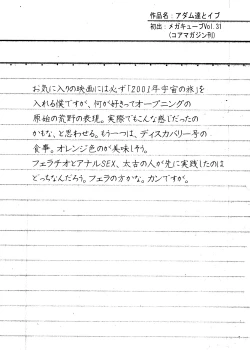 作品名：アダム達とイブ
初出：メガキューブVol.31
（コアマガジン刊）
お気に入りの映画には必ず「2001年宇宙の旅」を
入れる僕ですが、何が好きってオープニングの
原始の荒野の表現。実際でもこんな感じだったの
かもな、と思わせる。もう一つは、ディスカバリー号の
食事。オレンジ色のが美味しそう。
フェラチオとアナルSEX、太古の人が先に実践したのは
どっちなんだろう。フェラの方かな。カンですが。